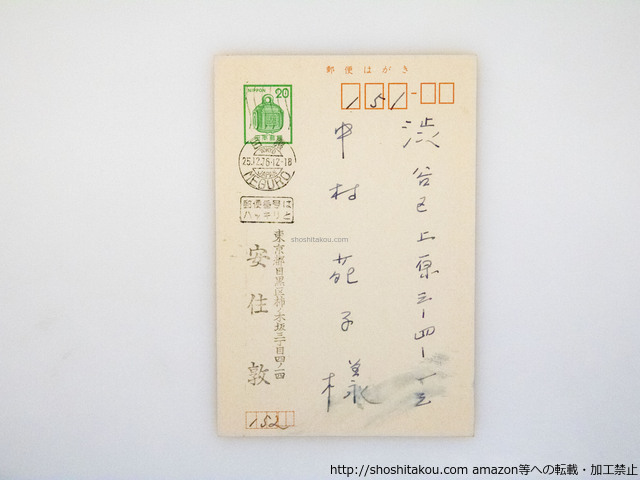 郵便はがき
151
渋谷区上原三ー四ー一三
中村苑子様
NIPPON 20
25.12.76.12-18
MEGURO
郵便番号は
ハッキリと
shoshitakou.com
東京都目黒区柿ノ木坂三丁目四ノ一四
安住敦
152
http://shoshitakou.com amazon等への転載・加工禁止